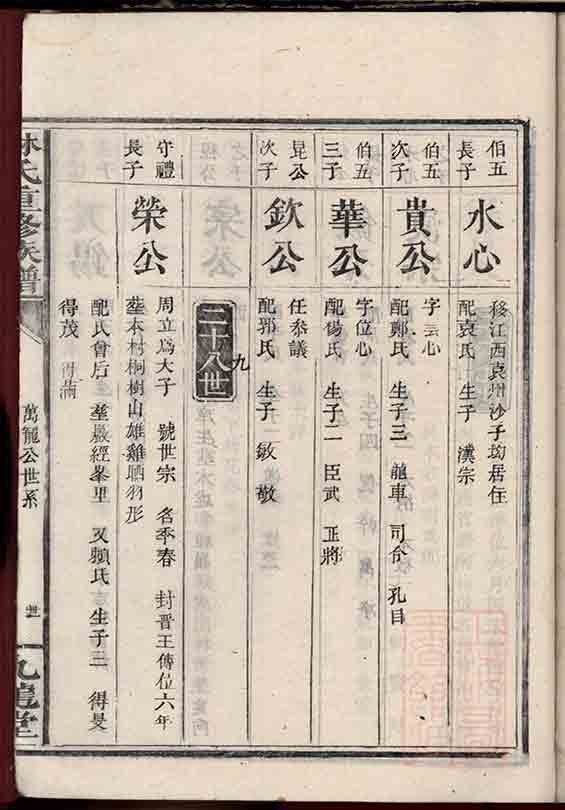 伯五
長子
水心
移江西袁州沙子均居住
配袁氏 生子 漢宗
伯五
次子
貴公
字云心
配鄭氏 生子三 龍車 司命 孔目
伯五
三子
華公
字位心
配楊氏 生子二 臣武 正將
昆公
次子
欽公
任叅議
配郭氏 生子 敏 敬
二十八世
九
守禮
長子
榮公
周立爲大子 號世宗 名季春 封晋王傳位六年
塟本村桐樹山雄雞晒羽形
配氏曾后 塟嚴經峯里 又頼氏 生子三 得旻
得茂 得滿
林氏重修族譜
萬龍公世系
九龍堂